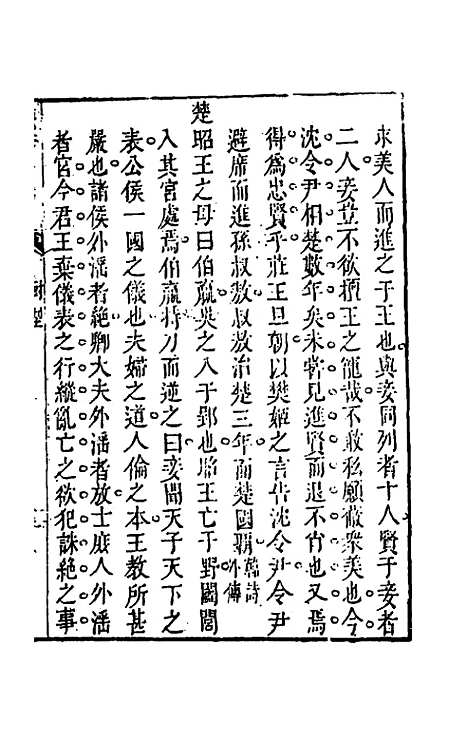 求美人而進之于王也與妾同列者十人賢于妾者
二人妾豈不欲擅王之寵哉不敢私願蔽衆美也今
沈令尹相楚數年矣未嘗見進賢而退不肖也又焉
得為忠賢乎莊王旦朝以樊姬之言告沈令尹令尹
避席而進孫叔敖叔敖治楚三年而楚國霸韓詩外傳
楚昭王之母曰伯嬴吳之入于郢也昭王亡于野闔閭
入其宮處焉伯嬴持刀而逆之曰妾聞天子天下之
表公侯一國之儀也夫婦之道人倫之本王教所甚
嚴也諸侯外淫者絶卿大夫外淫者放士庶人外淫
者宮今君王棄儀表之行縱亂亡之欲犯誅絶之事